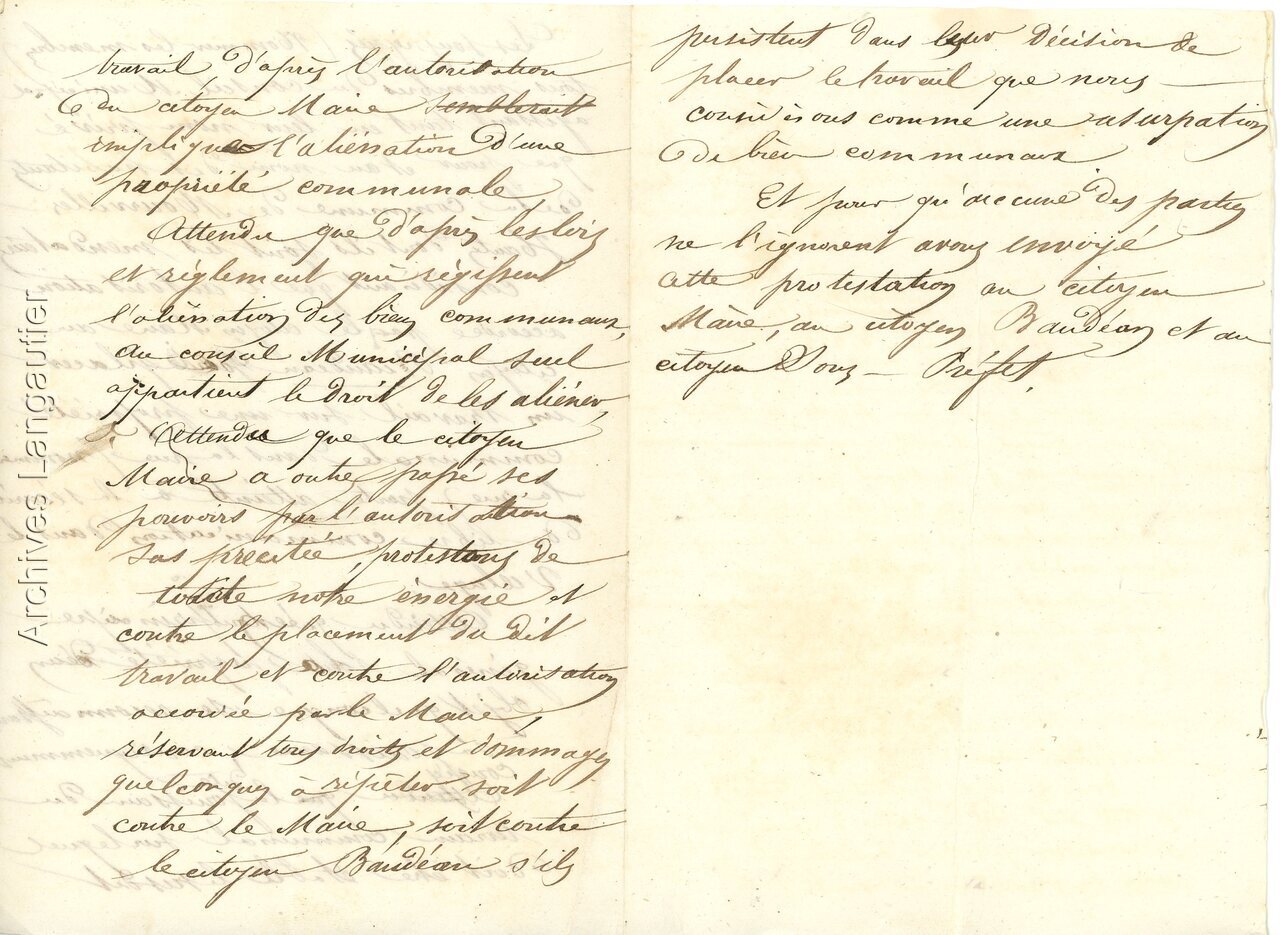 travail, d'après l'autorisation
du citoyen Maire semblerait
implique l'aliénation d'une
propriété communale
Attendu que d'après les lois
et réglement qui régissent
l'aliénation des biens communaux,
au conseil Municipal seul
appartient le droit de les aliéner,
Attendu que le citoyen
Maire a outre passé ses
pouvoirs par l'autorisation
sus précitée, protestons de
toute notre énergie et
contre le placement du dit
travail et contre l'autorisation
accordée par le Maire,
réservant tous droits et dommages
quelconques à répéter soit
contre le Maire, soit contre
le citoyen Baudéan s'ils
persistent dans leur décision de
placer le travail que nous
considérons comme une usurpation
de bien communaux
Et pour qu'aucune des parties
ne l'ignorent avons envoyé
cette protestation au citoyen
Maire, au citoyen Baudéan et au
citoyen Sous - Préfet.
Archives Langautier